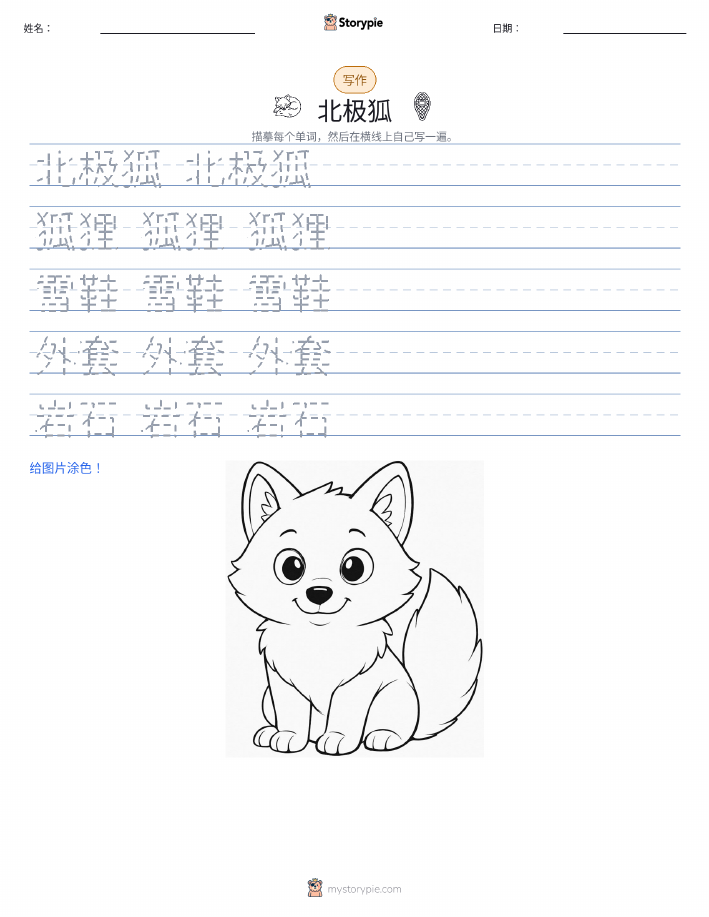 姓名：
Storypie
日期：
写作
北极狐
描摹每个单词，然后在横线上自己写一遍。
北极狐 北极狐
狐狸 狐狸 狐狸
雪鞋 雪鞋 雪鞋
外套 外套 外套
岩石 岩石 岩石
给图片涂色！
mystorypie.com